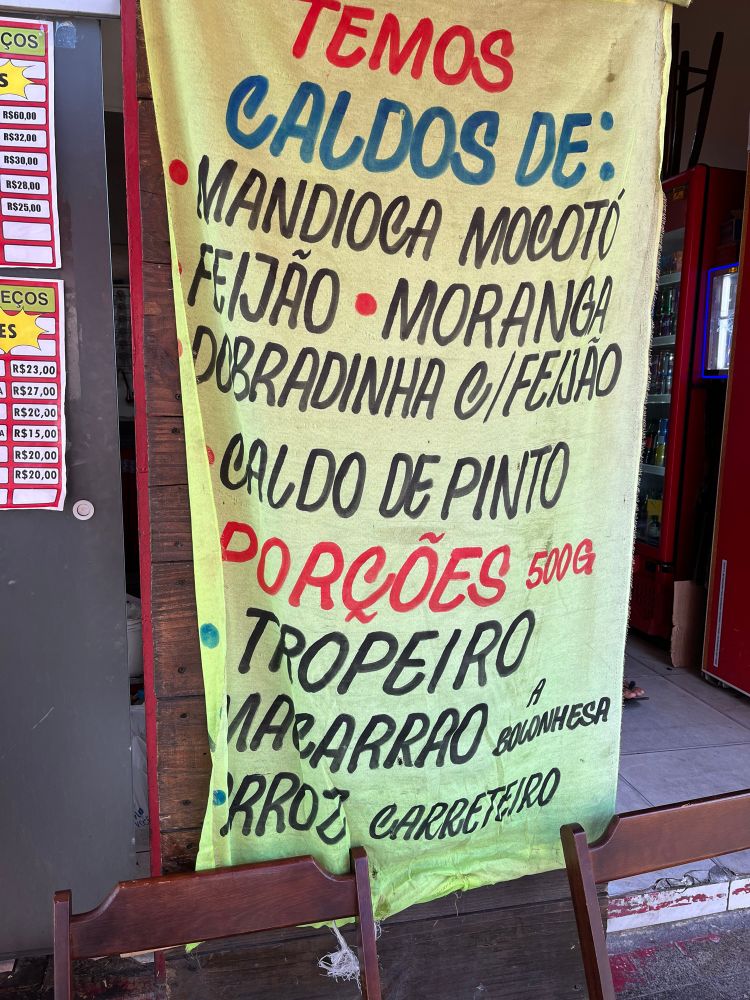 TEMOS
CALDOS DE:
MANDIOCA MOCOTÓ
FEIJÃO • MORANGA
DOBRADINHA C/FEIJÃO
CALDO DE PINTO
PORÇÕES 500G
TROPEIRO
MACARRAO A BOLONHESA
ARROZ CARRETEIRO
ÇOS
S
R$60,00
R$32,00
R$30,00
R$28,00
R$25,00
EÇOS
ES
R$23,00
R$27,00
R$20,00
R$15,00
R$20,00
R$20,00